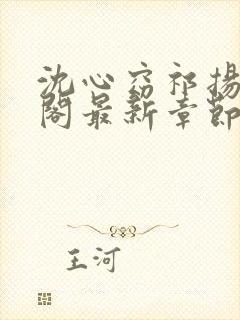 沈心窈祁扬
阁最新章节
王河